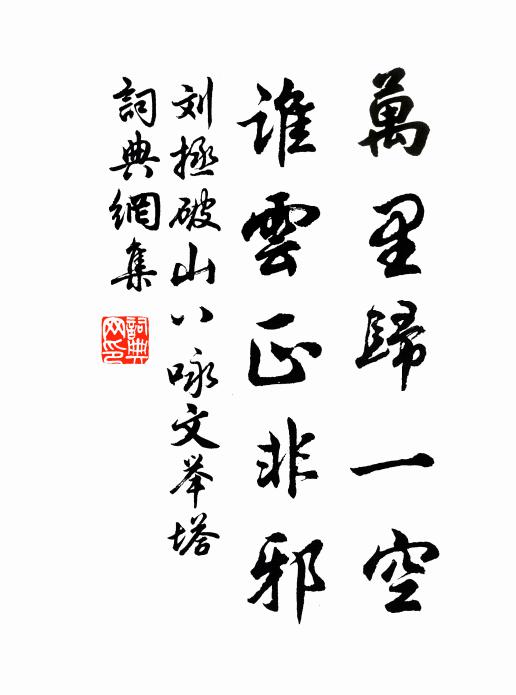 萬里歸一空
誰雲正非邪
刘拯破山八咏文举塔
詞典網集
詞典网印